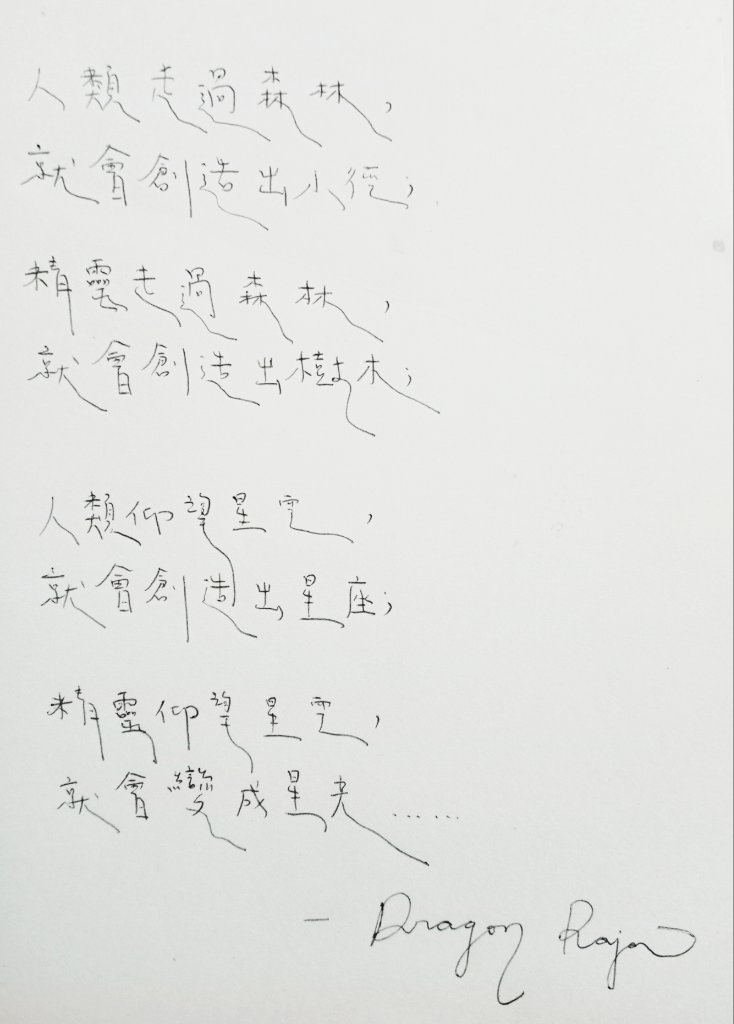 人類走過森林，
就會創造出小徑；
精靈走過森林，
就會創造出樹木；
人類仰望星空，
就會創造出星座；
精靈仰望星空，
就會變成星光……
— Dragon Raja